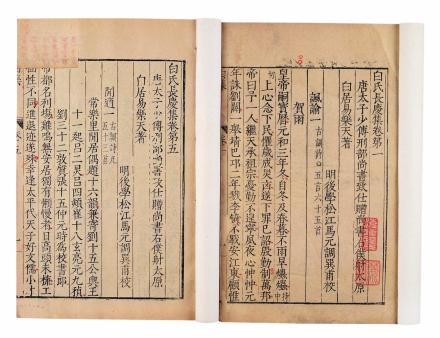 白氏長慶集卷第一
唐太子少傅刑部尚書致仕贈尚書右僕射太原
白居易樂天著
明後學松江馬元調巽甫校
諷諭一 古調詩 五言 六十五首
賀雨
皇帝嗣寶曆元和三年冬自冬及春暮不雨旱爞爞
上心念下民懼歲成災凶遂下罪己詔殷勤制萬邦
帝曰予一人繼天承祖宗憂勤不遑寧夙夜心忡忡元
年誅劉闢一舉靖巴邛二年戮李錡不戰安江東顧惟
白氏長慶集卷第五
唐太子少傅刑部尚書致仕贈尚書右僕射太原
白居易樂天著
明後學松江馬元調巽甫校
閒適一 古調詩 五言 五十三首
常樂里閒居偶題十六韻兼寄劉十五公輿王
十一起呂二炅呂四熲崔十八玄亮元九稹
劉三十二敦質張十五仲元時為校書郎
帝都名利場雞鳴無安居獨有懶慢者日高頭未梳工
拙性不同進退跡遂殊幸逢太平代天子好文儒小才